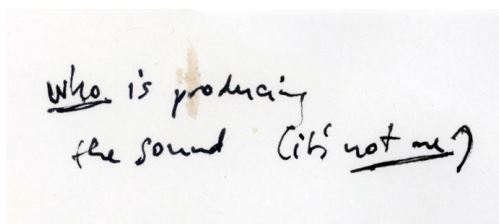 who is producing
the sound (it's not me)